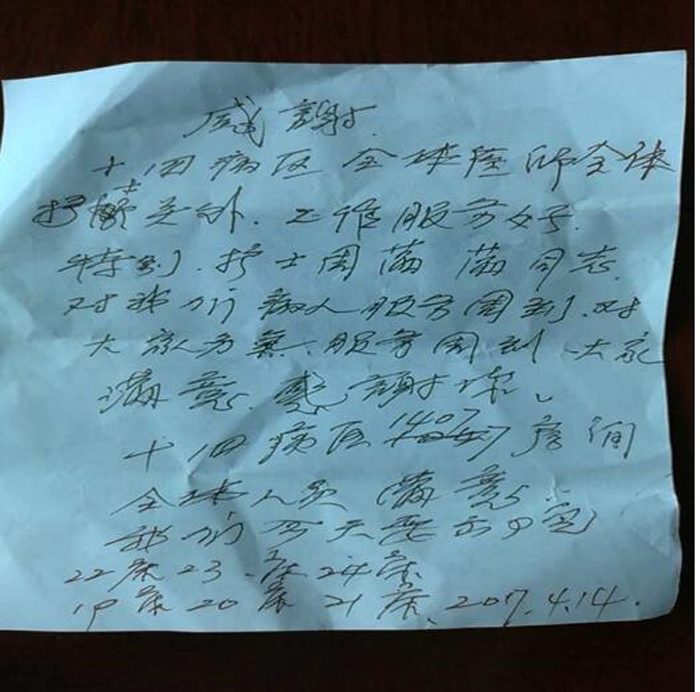 感謝
十四病区全体医师全体
护士
工作服务好
特别护士周满满同志
对我们病人服务周到.对
大家
服务周到大家
满意感謝
十四病区1407房间
全体人员满意
我们
22床23床24床
19床20床21床.2017.4.14.